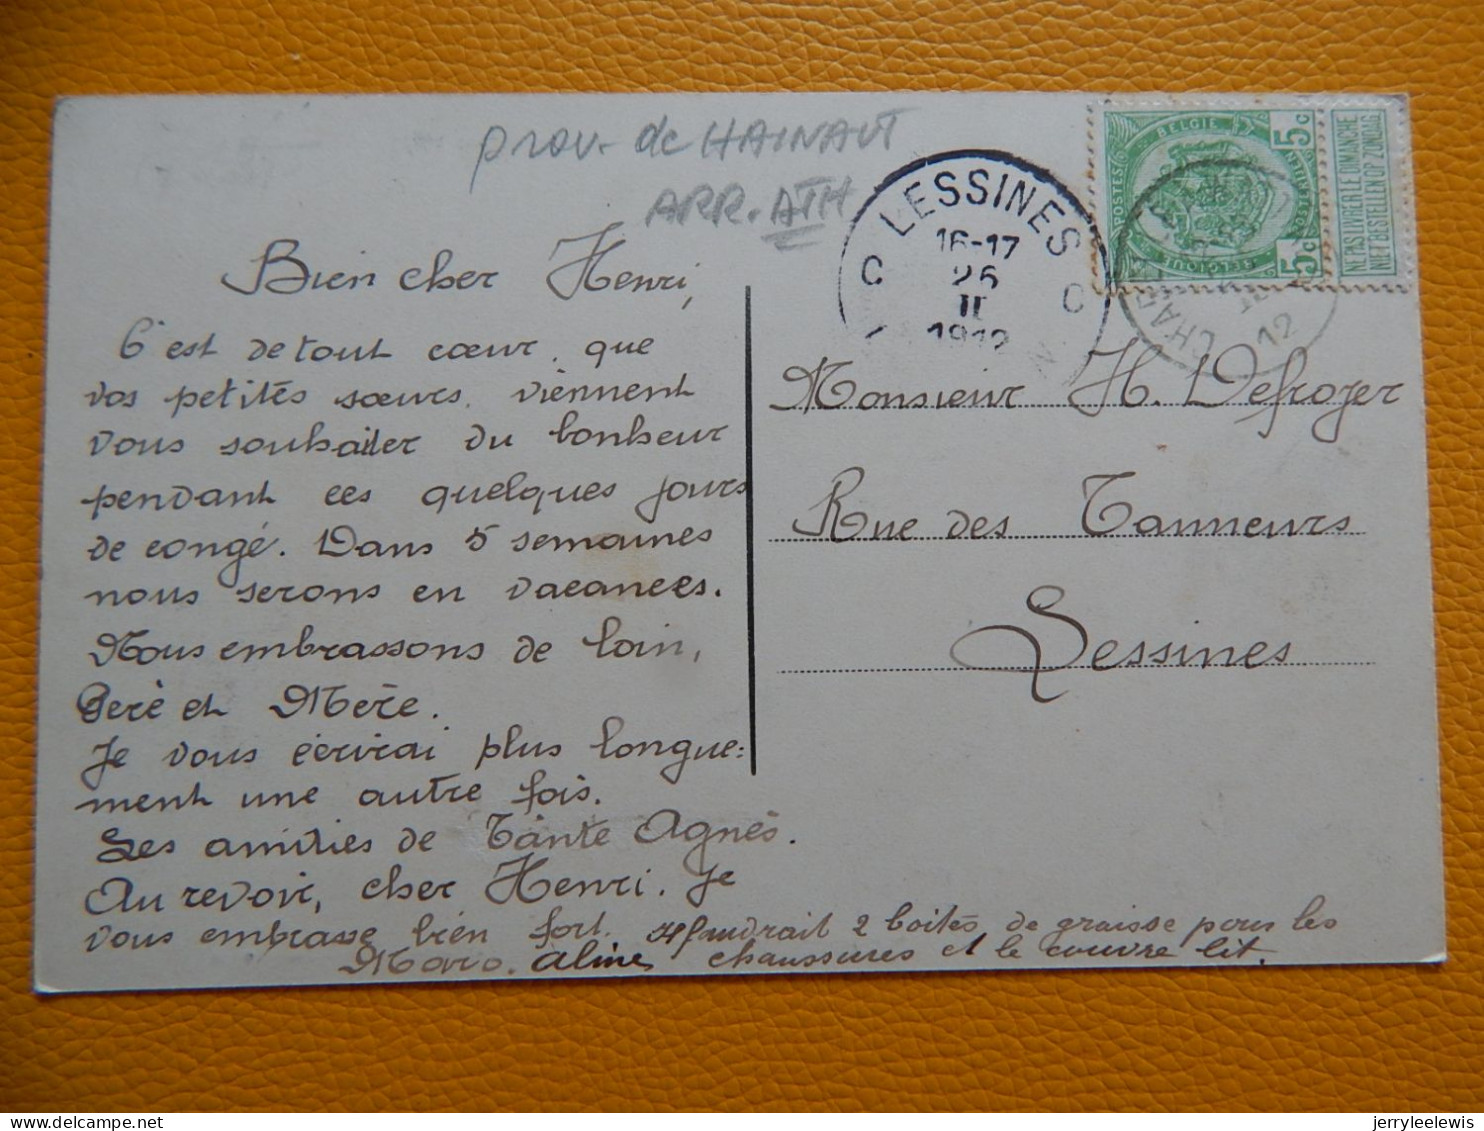 prov. de HAINAUT
ARR. ATH
LESSINES
16-17
26
II
1912
C C
BELGIE
POSTES
POSTERIJEN
BELGIQUE
5c
5c
NE PAS LIVRER LE DIMANCHE
NIET BESTELLEN OP ZONDAG
CHAR
12
Bien cher Henri,
C'est de tout cœur que
vos petites sœurs viennent
vous souhaiter du bonheur
pendant ces quelques jours
de congé. Dans 5 semaines
nous serons en vacances.
Nous embrassons de loin,
Père et Mère.
Je vous écrirai plus longue=
ment une autre fois.
Les amitiés de Tante Agnès.
Au revoir, cher Henri. Je
vous embrasse bien fort.
Aline
Il faudrait 2 boites de graisse pour les
chaussures et le couvre lit.
Monsieur H. Defroyer
Rue des Tanneurs
Lessines
jerryleelewis